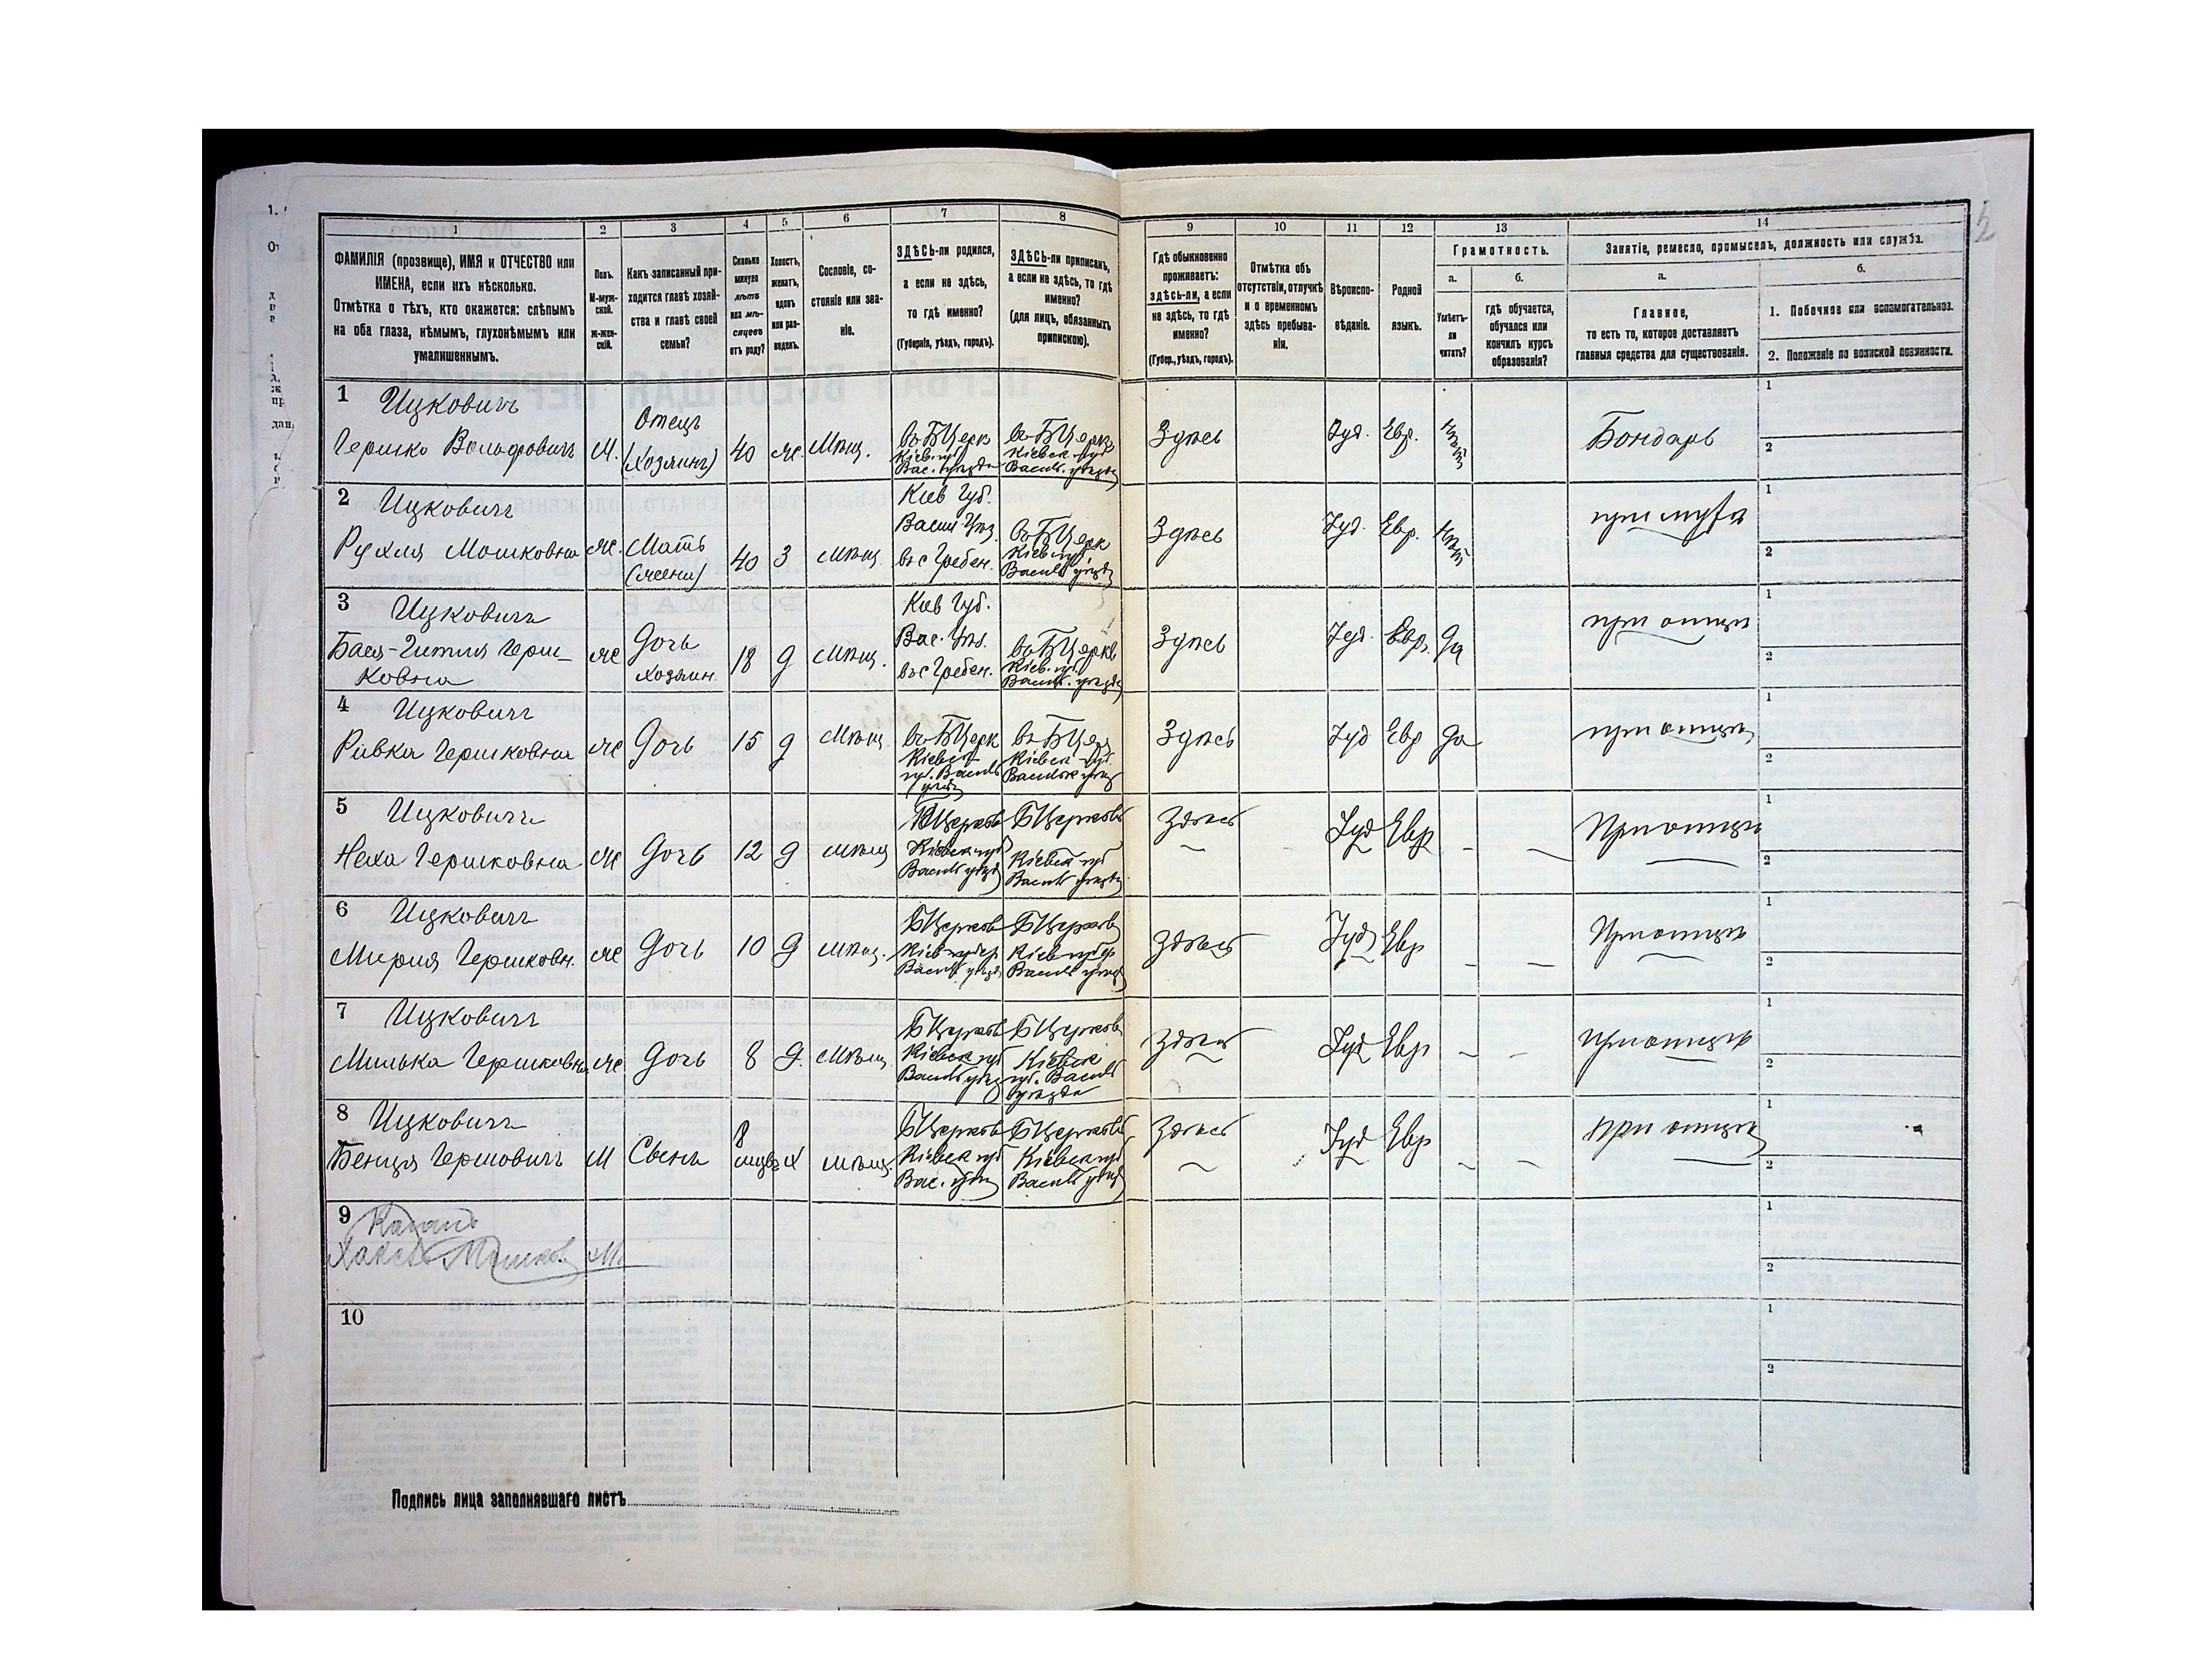 1 2 3 4 5 6 7 8 9 10 11 12 13 14
ФАМИЛІЯ (прозвище), ИМЯ и ОТЧЕСТВО или
ИМЕНА, если ихъ нѣсколько.
Отмѣтка о тѣхъ, кто окажется: слѣпымъ
на оба глаза, нѣмымъ, глухонѣмымъ или
умалишеннымъ.
Полъ.
М-муж-
ской.
Ж-жен-
скій.
Какъ записанный при-
ходится главѣ хозяй-
ства и главѣ своей
семьи?
Сколько
минуло
лѣтъ
или мѣ-
сяцевъ
отъ роду?
Холостъ,
женатъ,
вдовъ
или раз-
веденъ.
Сословіе, со-
стояніе или зва-
ніе.
ЗДѢСЬ-ли родился,
а если не здѣсь,
то гдѣ именно?
(Губернія, уѣздъ, городъ).
ЗДѢСЬ-ли приписанъ,
а если не здѣсь, то гдѣ
именно?
(для лицъ, обязанныхъ
припискою).
Гдѣ обыкновенно
проживаетъ:
здѣсь-ли, а если
не здѣсь, то гдѣ
именно?
(Губер., уѣздъ, городъ).
Отмѣтка объ
отсутствіи, отлучкѣ
и о временномъ
здѣсь пребыва-
ніи.
Вѣроиспо-
вѣданіе.
Родной
языкъ.
Грамотность.
а.
Умѣетъ-
ли
читать?
б.
гдѣ обучается,
обучался или
кончилъ курсъ
образованія?
Занятіе, ремесло, промыселъ, должность или служба.
а.
Главное,
то есть то, которое доставляетъ
главныя средства для существованія.
б.
1. Побочное или вспомогательное.
2. Положеніе по воинской повинности.
1 Ицковичъ
Гершко Вольфовичъ М. Отецъ
(Хозяинъ) 40 ж. Мѣщ. въ БЦерк
Кіев. губ
Вас. уѣзда въ БЦерк
Кіевск. губ
Васильк. уѣзда Здѣсь Іуд. Евр. Нѣтъ Бондарь 1
2
2 Ицковичъ
Рухля Мошковна Ж. Мать
(жена) 40 З Мѣщ. Кіев Губ.
Васил. Уѣз.
въ с Гребен. въ БЦерк
Кіев губ.
Васильк уѣзда Здѣсь Іуд. Евр. Нѣтъ при мужѣ 1
2
3 Ицковичъ
Бася-Гитля Герш-
ковна Ж Дочь
хозяин. 18 Д Мѣщ. Кіев Губ.
Вас. Уѣз.
въ с Гребен. въ БЦеркв
Кіев. губ
Васильк. уѣзда Здѣсь Іуд. Евр. Да при отцѣ 1
2
4 Ицковичъ
Ривка Гершковна Ж Дочь 15 Д Мѣщ въ БЦерк
Кіевск
губ. Васильк
уѣзда въ БЦер
Кіевск губ.
Васильк уѣзд Здѣсь Іуд Евр Да при отцѣ 1
2
5 Ицковичъ
Неха Гершковна Ж Дочь 12 Д Мѣщ БЦерковь
Кіевск губ
Васильк уѣзда БЦерковь
Кіевск губ
Васильк уѣзда Здѣсь Іуд Евр - - При отцѣ 1
2
6 Ицковичъ
Мирля Гершковн. Ж Дочь 10 Д Мѣщ. БЦерков
Кіев губер
Васильк уѣзд БЦерков
Кіев губер
Васильк уѣзд Здѣсь Іуд Евр - - При отцѣ 1
2
7 Ицковичъ
Милька Гершковна Ж Дочь 8 Д. Мѣщ БЦерков
Кіевск губ
Васильк уѣзд БЦерков
Кіевск
губ. Васильк
уѣзда Здѣсь Іуд Евр - - При отцѣ 1
2
8 Ицковичъ
Бенця Гершовичъ М Сынъ 8
мѣсяц Х Мѣщ. БЦерков
Кіевск губ
Вас. уѣзд БЦерковь
Кіевск губ
Васильк уѣзд Здѣсь Іуд Евр - - При отцѣ 1
2
9 Каганъ
Мошков. М. 1
2
10 1
2
Подпись лица заполнявшаго листъ